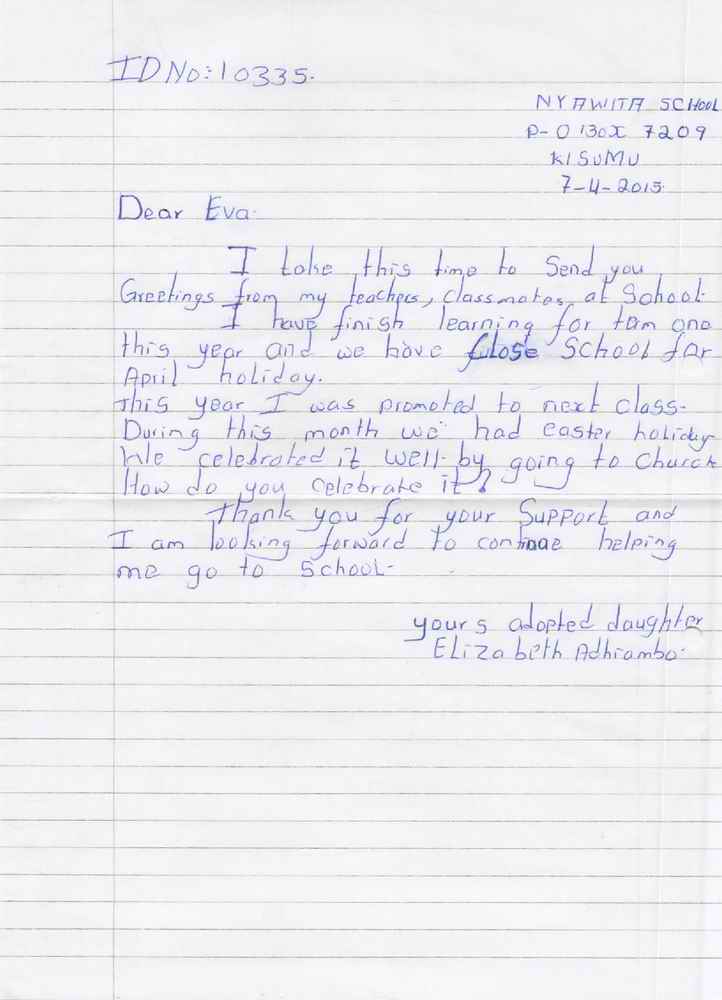 ID No: 10335.
NYAWITA SCHOOL
P-O BOX 7209
KISUMU
7-4-2015.
Dear Eva.
I take this time to Send you
Greetings from my teachers, classmates, at School.
I have finish learning for tam one
this year and we have close School for
April holiday.
This year I was promoted to next class.
During this month we had easter holiday
We celebrated it well by going to church
How do you celebrate it?
Thank you for your Support and
I am looking forward to continue helping
me go to School.
yours adopted daughter
Elizabeth Adhiambo.